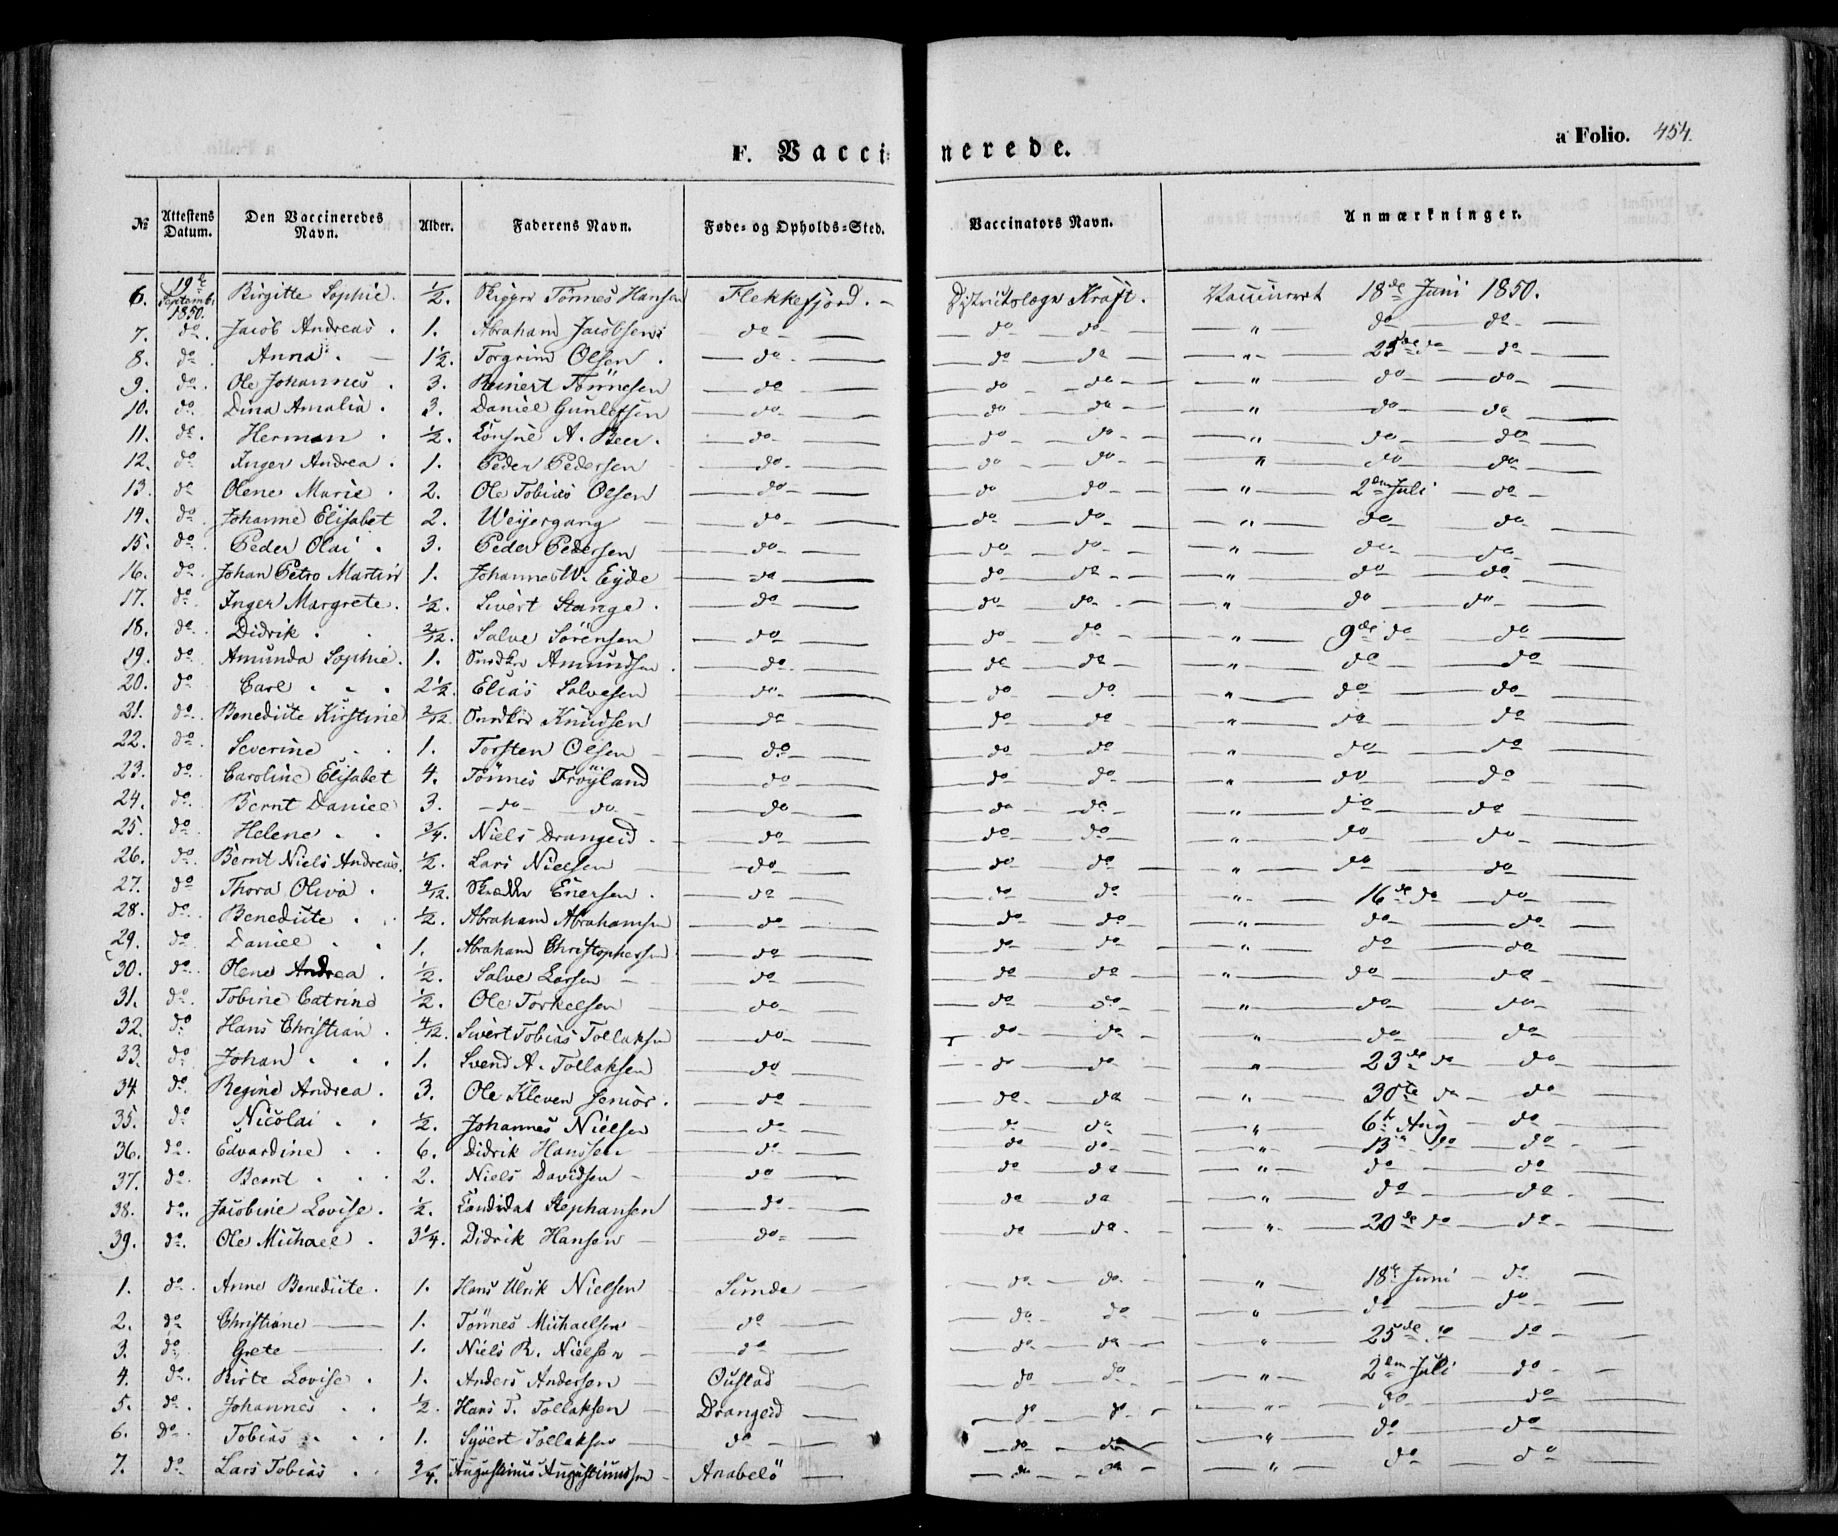 F. Vaccinerede.
a Folio. 454.
№ | Attestens Datum. | Den Vaccineredes Navn. | Alder. | Faderens Navn. | Føde- og Opholds-Sted. | Vaccinators Navn. | Anmærkninger.
6. | 19de Septemb. 1850. | Birgitte Sophie. | ½. | Tönnes Hansen | Flekkefjord. | Districtslæge Kraft. | Vaccineret 18de Juni 1850.
7. | do. | Jacob Andreas. | 1. | Abraham Jacobsen | do | do do | " do do
8. | do | Anna. | 1½. | Torgrim Olsen. | do | do do | " 25de do do
9. | do. | Ole Johannes. | 3. | Reinert Tönnesen | do | do do | " do do
10. | do. | Dina Amalia. | 3. | Daniel Gunlefsen | do | do do | " do do
11. | do. | Herman. | ½. | A. Beer. | do | do do | " do do
12. | do | Inger Andrea. | 1. | Peder Pedersen | do | do do | " do do
13. | do | Olene Marie. | 2. | Ole Tobias Olsen | do | do do | " 2den Juli do
14. | do. | Johanne Elisabet | 2. | Weyergang | do | do do | " do do
15. | do. | Peder Olai. | 3. | Peder Pedersen | do | do do | " do do
16. | do. | Johan Petro Martin | 1. | Johannes W. Eyde | do | do do | " do do
17. | do. | Inger Margrete. | ½. | Sivert Stange. | do | do do | " do do
18. | do. | Didrik. | 2/12. | Salve Sörensen | do | do do | " 9de do do
19. | do. | Amunda Sophie. | 1. | Snedkr Amundsen. | do. | do do | " do do
20. | do | Carl. | 2½. | Elias Salvesen | do | do do | " do do
21. | do. | Benedicte Kirstine | 2/12. | Snedkr Knudsen | do | do do | " do do
22. | do. | Severine | 1. | Torsten Olsen | do | do do | " do do
23. | do. | Caroline Elisabet | 4. | Tönnes Fröyland | do | do do | " do do
24. | do. | Bernt Daniel | 3. | do do | do | do do | " do do
25. | do. | Helene. | ¾. | Niels Drangeid. | do | do do | " do do
26. | do. | Bernt Niels Andreas. | ½. | Lars Nielsen | do | do do | " do do
27. | do | Thora Oliva. | 4/12. | Skrædder Enersen. | do | do do | " 16de do do
28. | do. | Benedicte. | ½. | Abraham Abrahamsen | do | do do | " do do
29. | do. | Daniel | 1. | Abraham Christophersen | do | do do | " do do
30. | do. | Olene Andrea. | ½. | Salve Larsen | do | do do | " do do
31. | do. | Tobine Catrine | ½. | Ole Torkelsen | do | do do | " do do
32. | do | Hans Christian. | 4/12. | Sivert Tobias Tollaksen | do | do do | " do do
33. | do. | Johan. | 1. | Svend A. Tollaksen | do | do do | " 23de do do
34 | do. | Regine Andrea. | 3. | Ole Kleven senior. | do | do do | " 30te do do
35. | do | Nicolai | ½. | Johannes Nielsen | do | do do | " 6te Aug do
36. | do. | Edvardine | 6. | Didrik Hanssen | do | do do | " 13de do do
37. | do. | Bernt | 2. | Niels Davidsen | do | do do | " do do
38. | do. | Jacobine Lovise. | ½. | Candidat Stephansen | do | do do | " do do
39. | do. | Ole Michael. | 3¼. | Didrik Hansen | do | do do | " 20de do do
1. | do. | Anne Benedicte. | 1. | Hans Ulrik Nielsen | Sunde | do do | " 18de Juni do
2. | do | Christiane | 1. | Tönnes Michaelsen | do | do do | " do do
3. | do | Grete | 1. | Niels R. Nielsen | do | do do | " 25de do do
4. | do. | Birte Lovise. | 1. | Anders Andersen | Oustad | do do | " 2den Juli do
5. | do. | Johannes | ½. | Hans T. Tollaksen | Drangeid | do do | " do do
6. | do. | Tobias | 1. | Syvert Tollaksen | do | do do | " do do
7. | do | Lars Tobias. | ¾. | Augustinus Augustinussen | Anabelö | do do | " do do